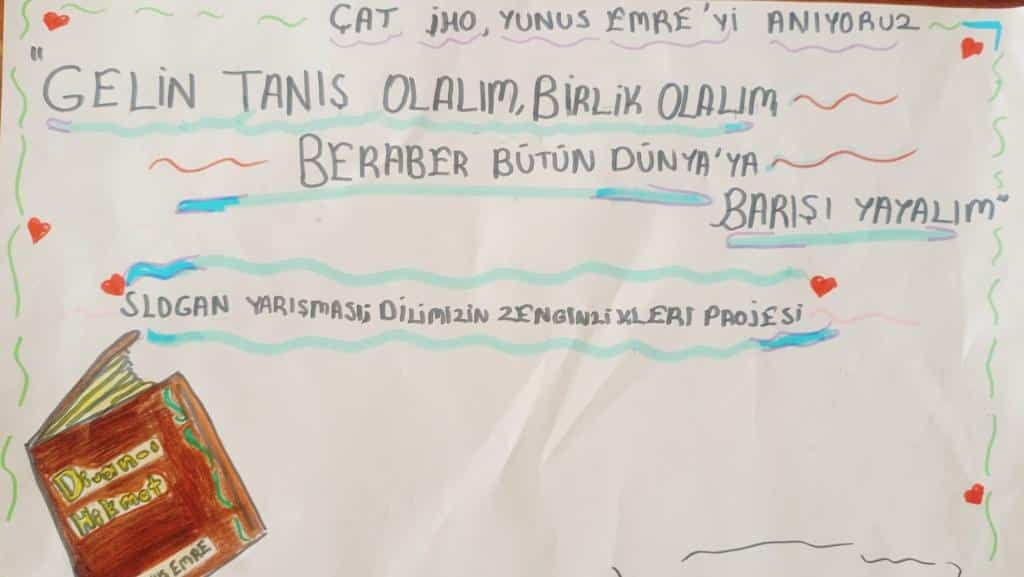 ÇAT İHO, YUNUS EMRE'Yİ ANIYORUZ
"GELİN TANIŞ OLALIM, BİRLİK OLALIM
BERABER BÜTÜN DÜNYA'YA
BARIŞI YAYALIM"
SLOGAN YARIŞMASI; DİLİMİZİN ZENGİNLİKLERİ PROJESİ
Divan-ı
Hikmet
EMRE